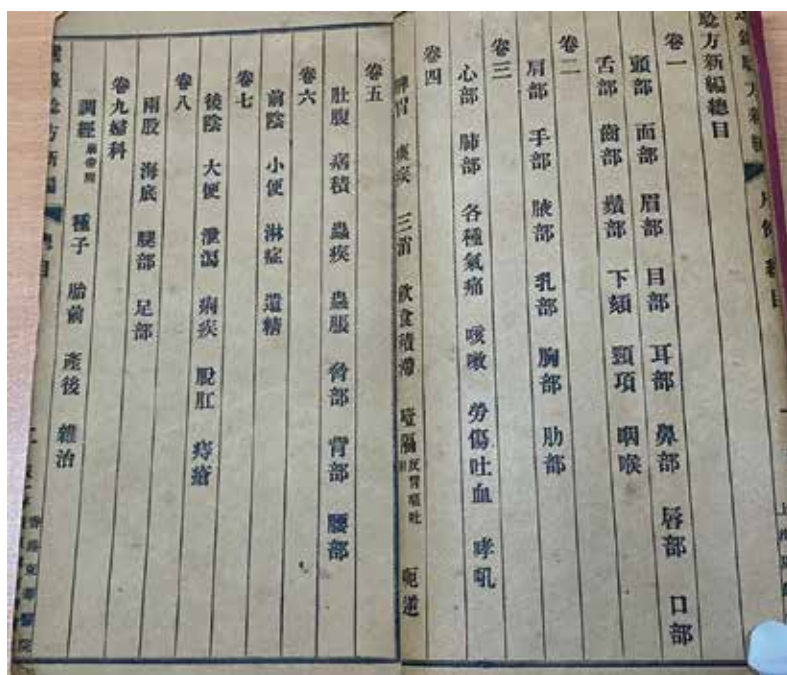 驗方新編總目
卷一
頭部 面部 眉部 目部 耳部 鼻部 唇部 口部
舌部 齒部 鬚部 下頦 頸項 咽喉
卷二
肩部 手部 腋部 乳部 胸部 肋部
卷三
心部 肺部 各種氣痛 咳嗽 勞傷吐血 哮吼
卷四
脾胃 痰疾 三消 飲食積滯 噎隔 呃逆
卷五
肚腹 痞積 蟲疾 蟲脹 脅部 背部 腰部
卷六
前陰 小便 淋症 遺精
卷七
後陰 大便 泄瀉 痢疾 脫肛 痔瘡
卷八
兩股 海底 腿部 足部
卷九婦科
調經 種子 胎前 產後 雜治
驗方新編 總目
二
香港東華醫院